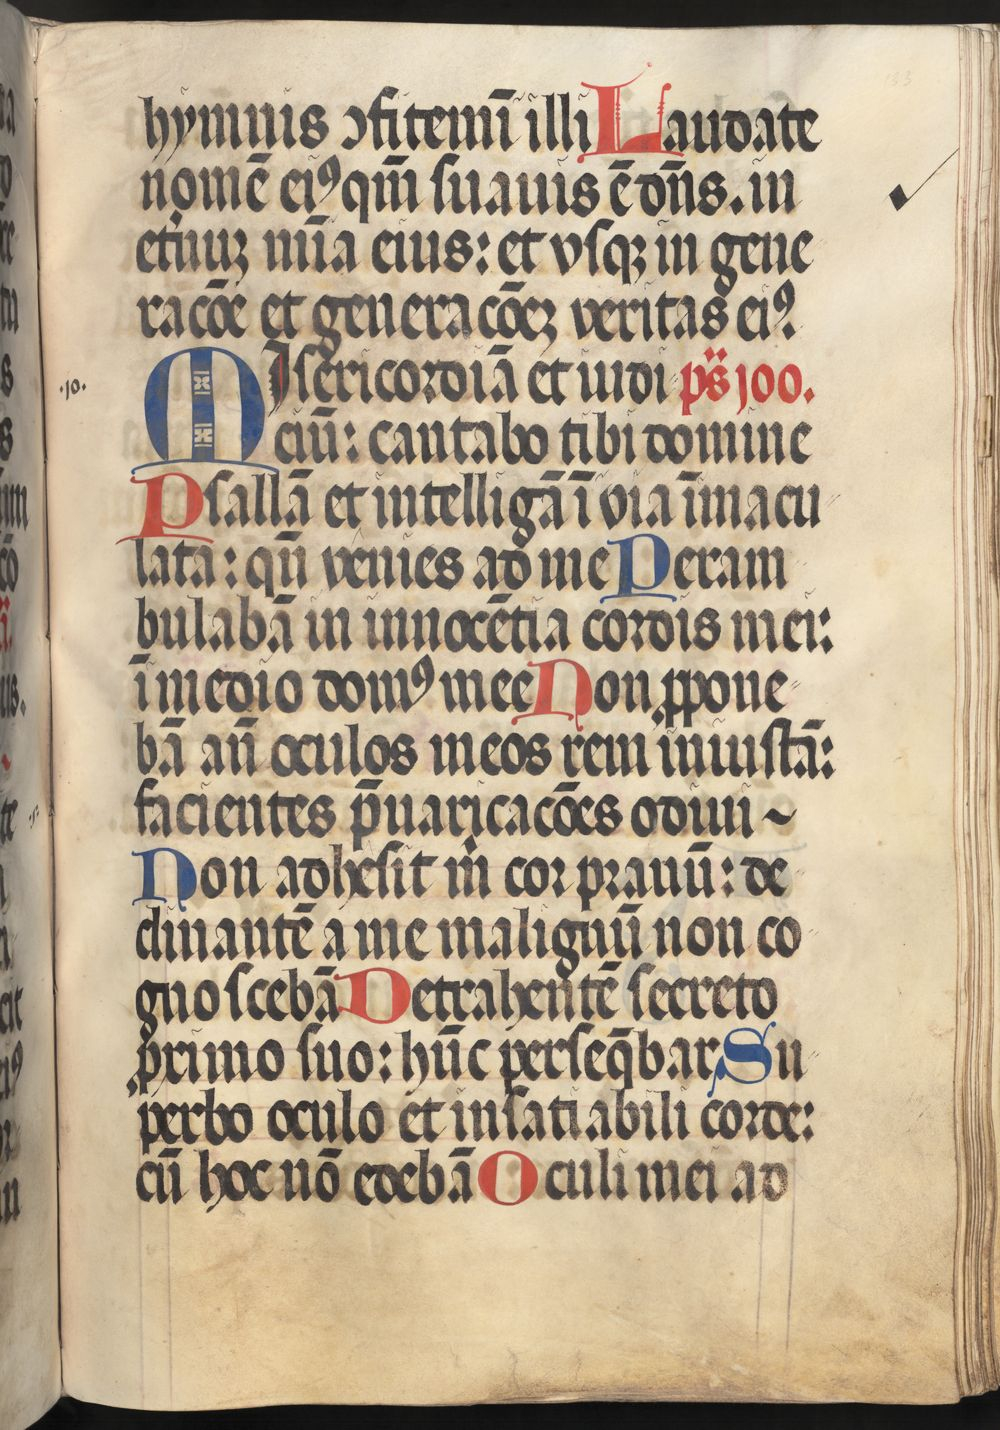 hymnis ꝯfitemī illi Laudate
nomē eiꝰ qm̄ suauis ē dn̄s. in
et̓nuꝫ mīa eius: et vsqꝫ in gene
racōe et generacōeꝫ veritas eiꝰ.
·10· Misericordiā et iudi ps̄ 100.
ciū: cantabo tibi domine
Psallā et intelligā ī via īmacu
lata: qn̄ venies ad me Peram
bulabā in innocētia cordis mei:
ī medio domꝰ mee Non ꝓpone
bā an̄ oculos meos rem iniustā:
facientes p̄uaricacōes odiui ~
Non adhesit m̓ cor prauū: de
clinantē a me malignū non co
gnoscebā Detrahentē secreto
primo suo: hūc perseq̄bar Su
perbo oculo et insatiabili corde:
cū hoc nō edebā Oculi mei ad
133